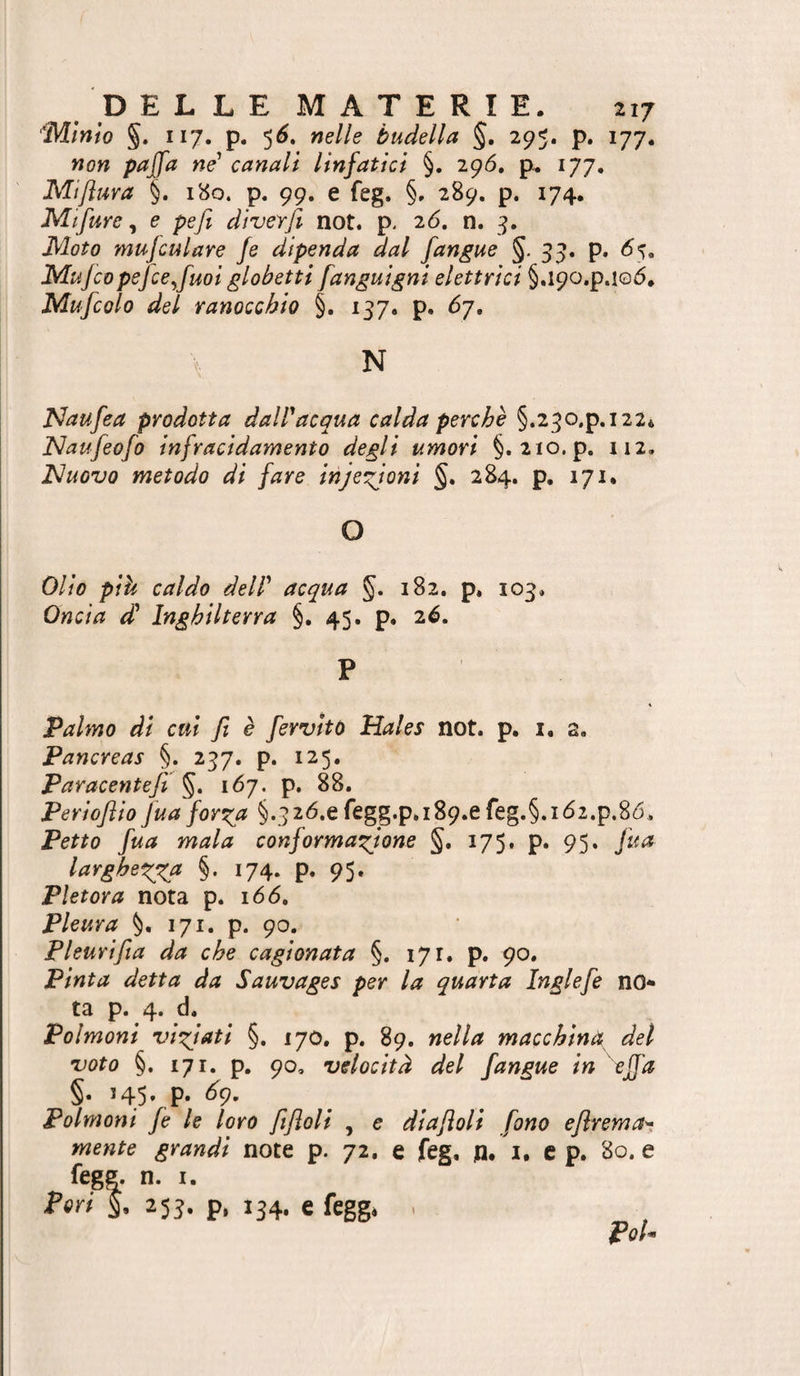 DELLE MATERIE. 217
Minio §. 117. p. 56. nelle budella §. 295. p. 177.
non paſſa ne' canali linfatici §. 296. p. 177.
Miſtura §. 180. p. 99. e ſeg. §. 289. p. 174.
Miſure, e peſi diverſi not. p. 26. n. 3.
Moto muſculare ſe dipenda dal ſangue §. 33. p. 65.
Muſco peſce, ſuoi globetti ſanguigni elettrici §.190.p.106.
Muſcolo del ranocchio §. 137. p. 67.
N
Nauſea prodotta dall'acqua calda perchè §.230.p.122.
Nauſeoſo infracidamento degli umori §. 210. p. 112.
Nuovo metodo di fare injezioni §. 284. p. 171.
O
Olio più caldo dell' acqua §. 182. p. 103.
Oncia d' Inghilterra §. 45. p. 26.
P
Palmo di cui ſi è ſervito Hales not. p. 1. 2.
Pancreas §. 237. p. 125.
Paracenteſi §. 167. p. 88.
Perioſtio ſua forza §.326.e ſegg.p.189.e ſeg.§.162.p.86.
Petto ſua mala conformazione §. 175. p. 95. ſua
larghezza §. 174. p. 95.
Pletora nota p. 166.
Pleura §. 171. p. 90.
Pleuriſia da che cagionata §. 171. p. 90.
Pinta detta da Sauvages per la quarta Ingleſe no-
ta p. 4. d.
Polmoni viziati §. 170. p. 89. nella macchina del
voto §. 171. p. 90. velocità del ſangue in eſſa
§. 145. p. 69.
Polmoni ſe le loro ſiſtoli , e diaſtoli ſono eſtrema-
mente grandi note p. 72. e ſeg. n. 1. e p. 80. e
ſegg. n. 1.
Pori §. 253. p. 134. e ſegg.
Pol-